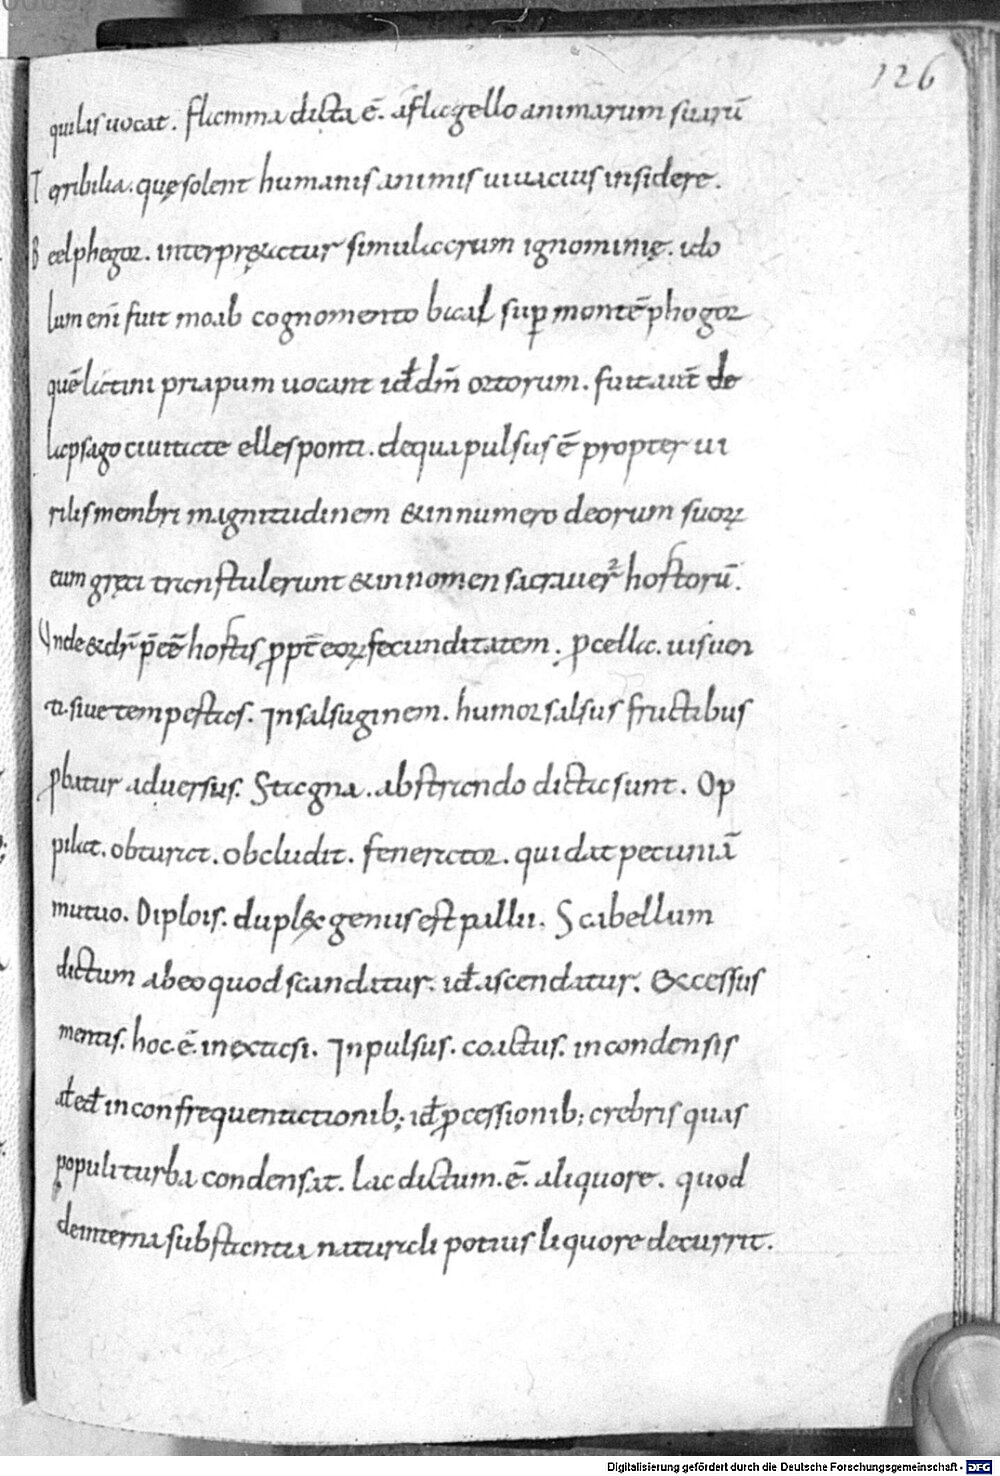 126
quilis uocat. flamma dicta ē. aflagello animarum suarū
Terribilia. quę solent humanis animis uiuacius insidere.
Beelphegor. interpręatur simulacrum ignominię. ido
lum enī fuit moab cognomento baal sup montē phogor
quē latini priapum uocant id dm̄ ortorum. fuit aut̄ de
lapsago ciuitate ellesponti. dequa pulsus ē propter ui
rilis membri magnitudinem & innumero deorum suorꝝ
eum gręci transtulerunt & innomen sacrauer hostorū.
Unde & dr̄ p̄cē hostis ꝓpt̄ eorꝝ fecunditatem. ꝓcella. uis uen
ti. siue tempestas. Insalsuginem. humor salsus fructibus
ꝓbatur aduersus. Stagna. abstriendo dicta sunt. Op
pilat. obturat. obcludit. fenerator. qui dat pecuniā
mutuo. Diplois. dupl& genus est pallii. Scabellum
dictum abeo quod scandatur. id ascendatur. &cessus
mentis. hoc. ē. inextasi. Inpulsus. coactus. incondensis
inconfrequentationib; id ꝓcessionib; crebris quas
populi turba condensat. lac dictum. ē. aliquore. quod
deinterna substantia naturali potius liquore decurrit.
Digitalisierung gefördert durch die Deutsche Forschungsgemeinschaft - DFG